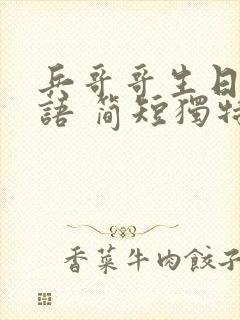 兵哥哥生日
語 簡短獨特
香菜牛肉餃子